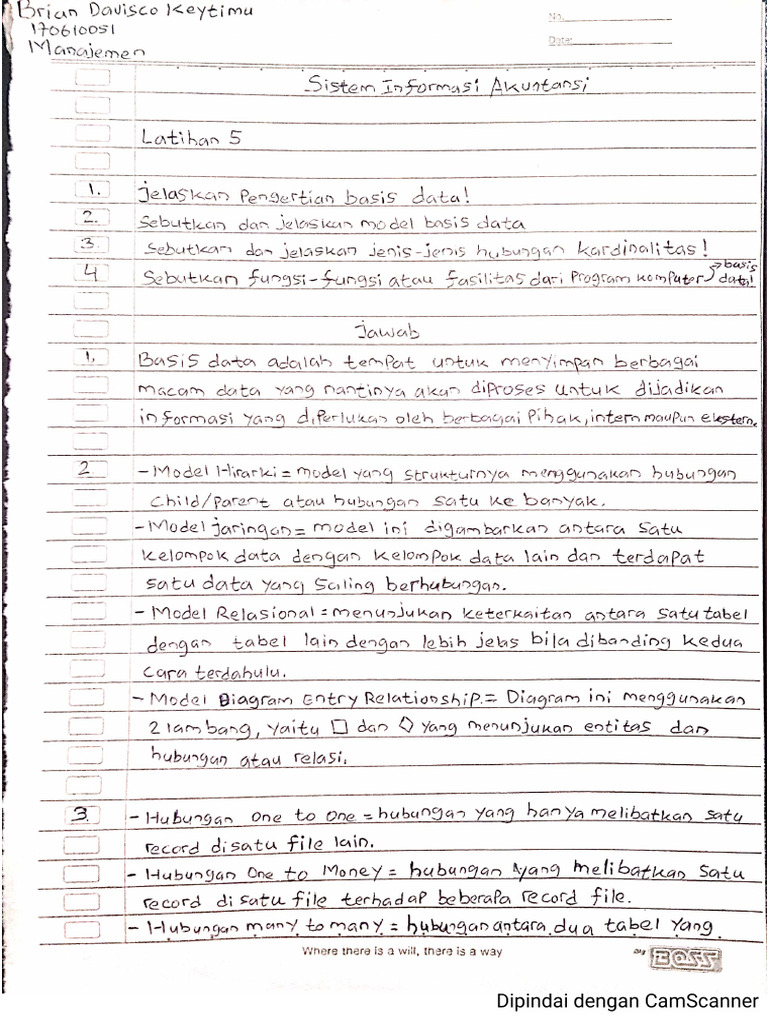 Brian Davisco Keytimu
170610051
Manajemen
No.
Date:
Sistem Informasi Akuntansi
Latihan 5
1. Jelaskan Pengertian basis data!
2. Sebutkan dan jelaskan model basis data
3. Sebutkan dan jelaskan jenis-jenis hubungan kardinalitas!
4 Sebutkan fungsi-fungsi atau fasilitas dari Program komputer basis data!
Jawab
1. Basis data adalah tempat untuk menyimpan berbagai
macam data yang nantinya akan diproses untuk dijadikan
informasi yang diperlukan oleh berbagai Pihak, intern maupun ekstern.
2 - Model Hirarki = model yang strukturnya menggunakan hubungan
child/parent atau hubungan satu ke banyak.
- Model jaringan = model ini digambarkan antara satu
kelompok data dengan kelompok data lain dan terdapat
satu data yang saling berhubungan.
- Model Relasional = menunjukan keterkaitan antara satu tabel
dengan tabel lain dengan lebih jelas bila dibanding kedua
cara terdahulu.
- Model Diagram Entry Relationship. = Diagram ini menggunakan
2 lambang, yaitu □ dan ◇ yang menunjukan entitas dan
hubungan atau relasi.
3. - Hubungan one to one = hubungan yang hanya melibatkan satu
record disatu file lain.
- Hubungan One to Money = hubungan yang melibatkan satu
record disatu file terhadap beberapa record file.
- Hubungan many to many = hubungan antara dua tabel yang
Where there is a will, there is a way
BOSS
Dipindai dengan CamScanner